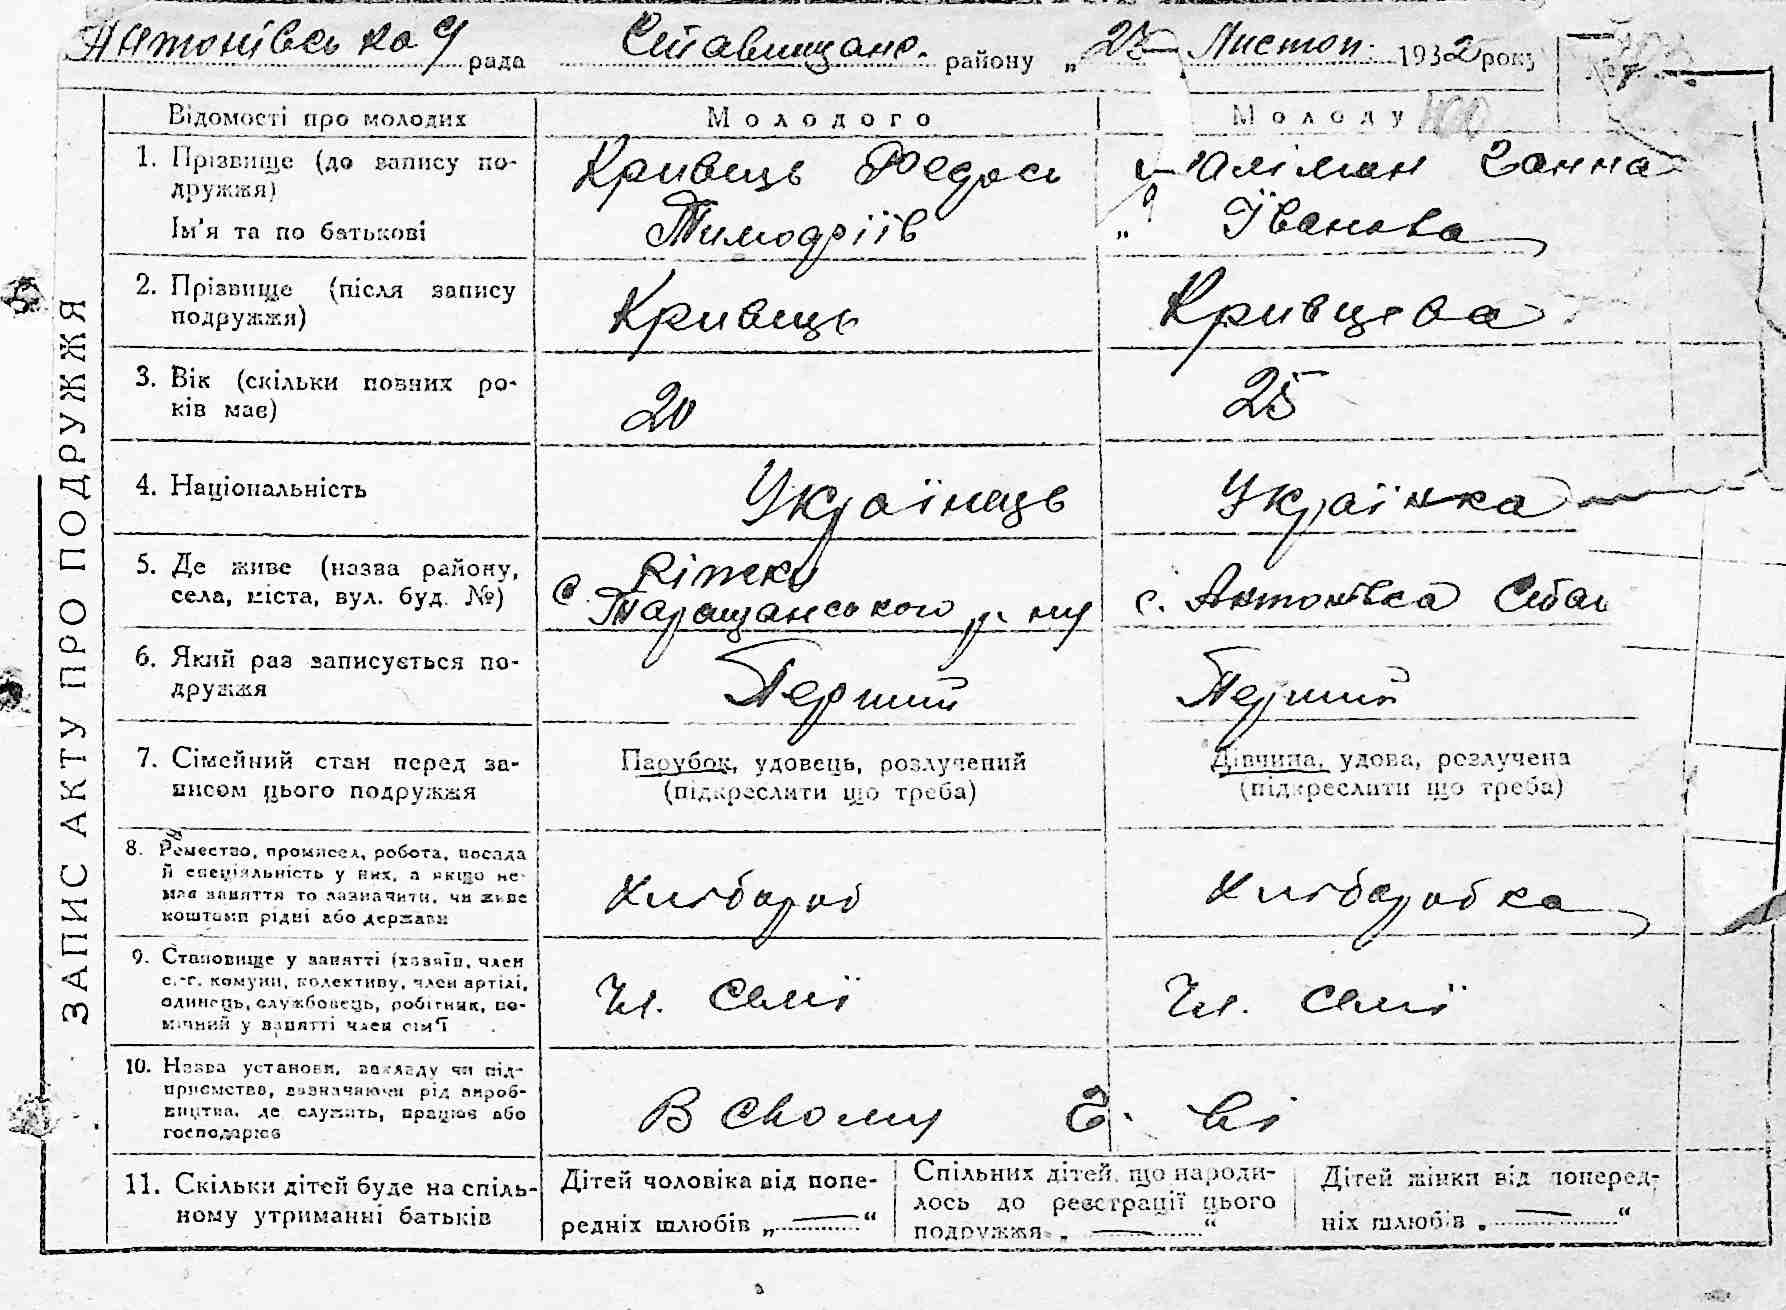 Антонівська рада Ставищанс. району „25 Листоп. 1932 року №
ЗАПИС АКТУ ПРО ПОДРУЖЖЯ
Відомості про молодих
Молодого
Молоду
100
1. Прізвище (до запису по-
дружжя)
Ім'я та по батькові
Кривець Федось
Тимофіїв
Ганна
„ Іванова
2. Прізвище (після запису
подружжя)
Кривець
Кривцева
3. Вік (скільки повних ро-
ків має)
20
25
4. Національність
Українець
Українка
5. Де живе (назва району,
села, міста, вул. буд. №)
с. Ріжки
Таращанського р-ну
с. Антонівка
6. Який раз записується по-
дружжя
Перший
Перший
7. Сімейний стан перед за-
писом цього подружжя
Парубок, удовець, розлучений
(підкреслити що треба)
Дівчина, удова, розлучена
(підкреслити що треба)
8. Ремество, промисел, робота, посада
й спеціяльність у них, а якщо не-
має заняття то зазначити, чи живе
коштами рідні або держави
Хлібороб
Хліборобка
9. Становище у занятті (хазяїн, член
с.-г. комуни, колективу, член артілі,
одинець, службовець, робітник, по-
мічний у занятті член сім'ї
Чл. семї
Чл. семї
10. Назва установи, закладу чи під-
приємства, зазначаючи рід вироб-
ництва, де служить, працює або
господарює
В свому
11. Скільки дітей буде на спіль-
ному утриманні батьків
Дітей чоловіка від попе-
редніх шлюбів „—“
Спільних дітей, що народи-
лось до реєстрації цього
подружжя „—“
Дітей жінки від поперед-
ніх шлюбів „—“